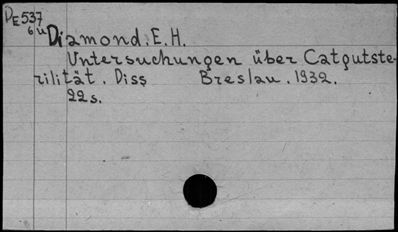 DE537
6 u
Diamond. E. H.
Untersuchungen über Catgutste-
rilität. Diss Breslau. 1932.
22 s.